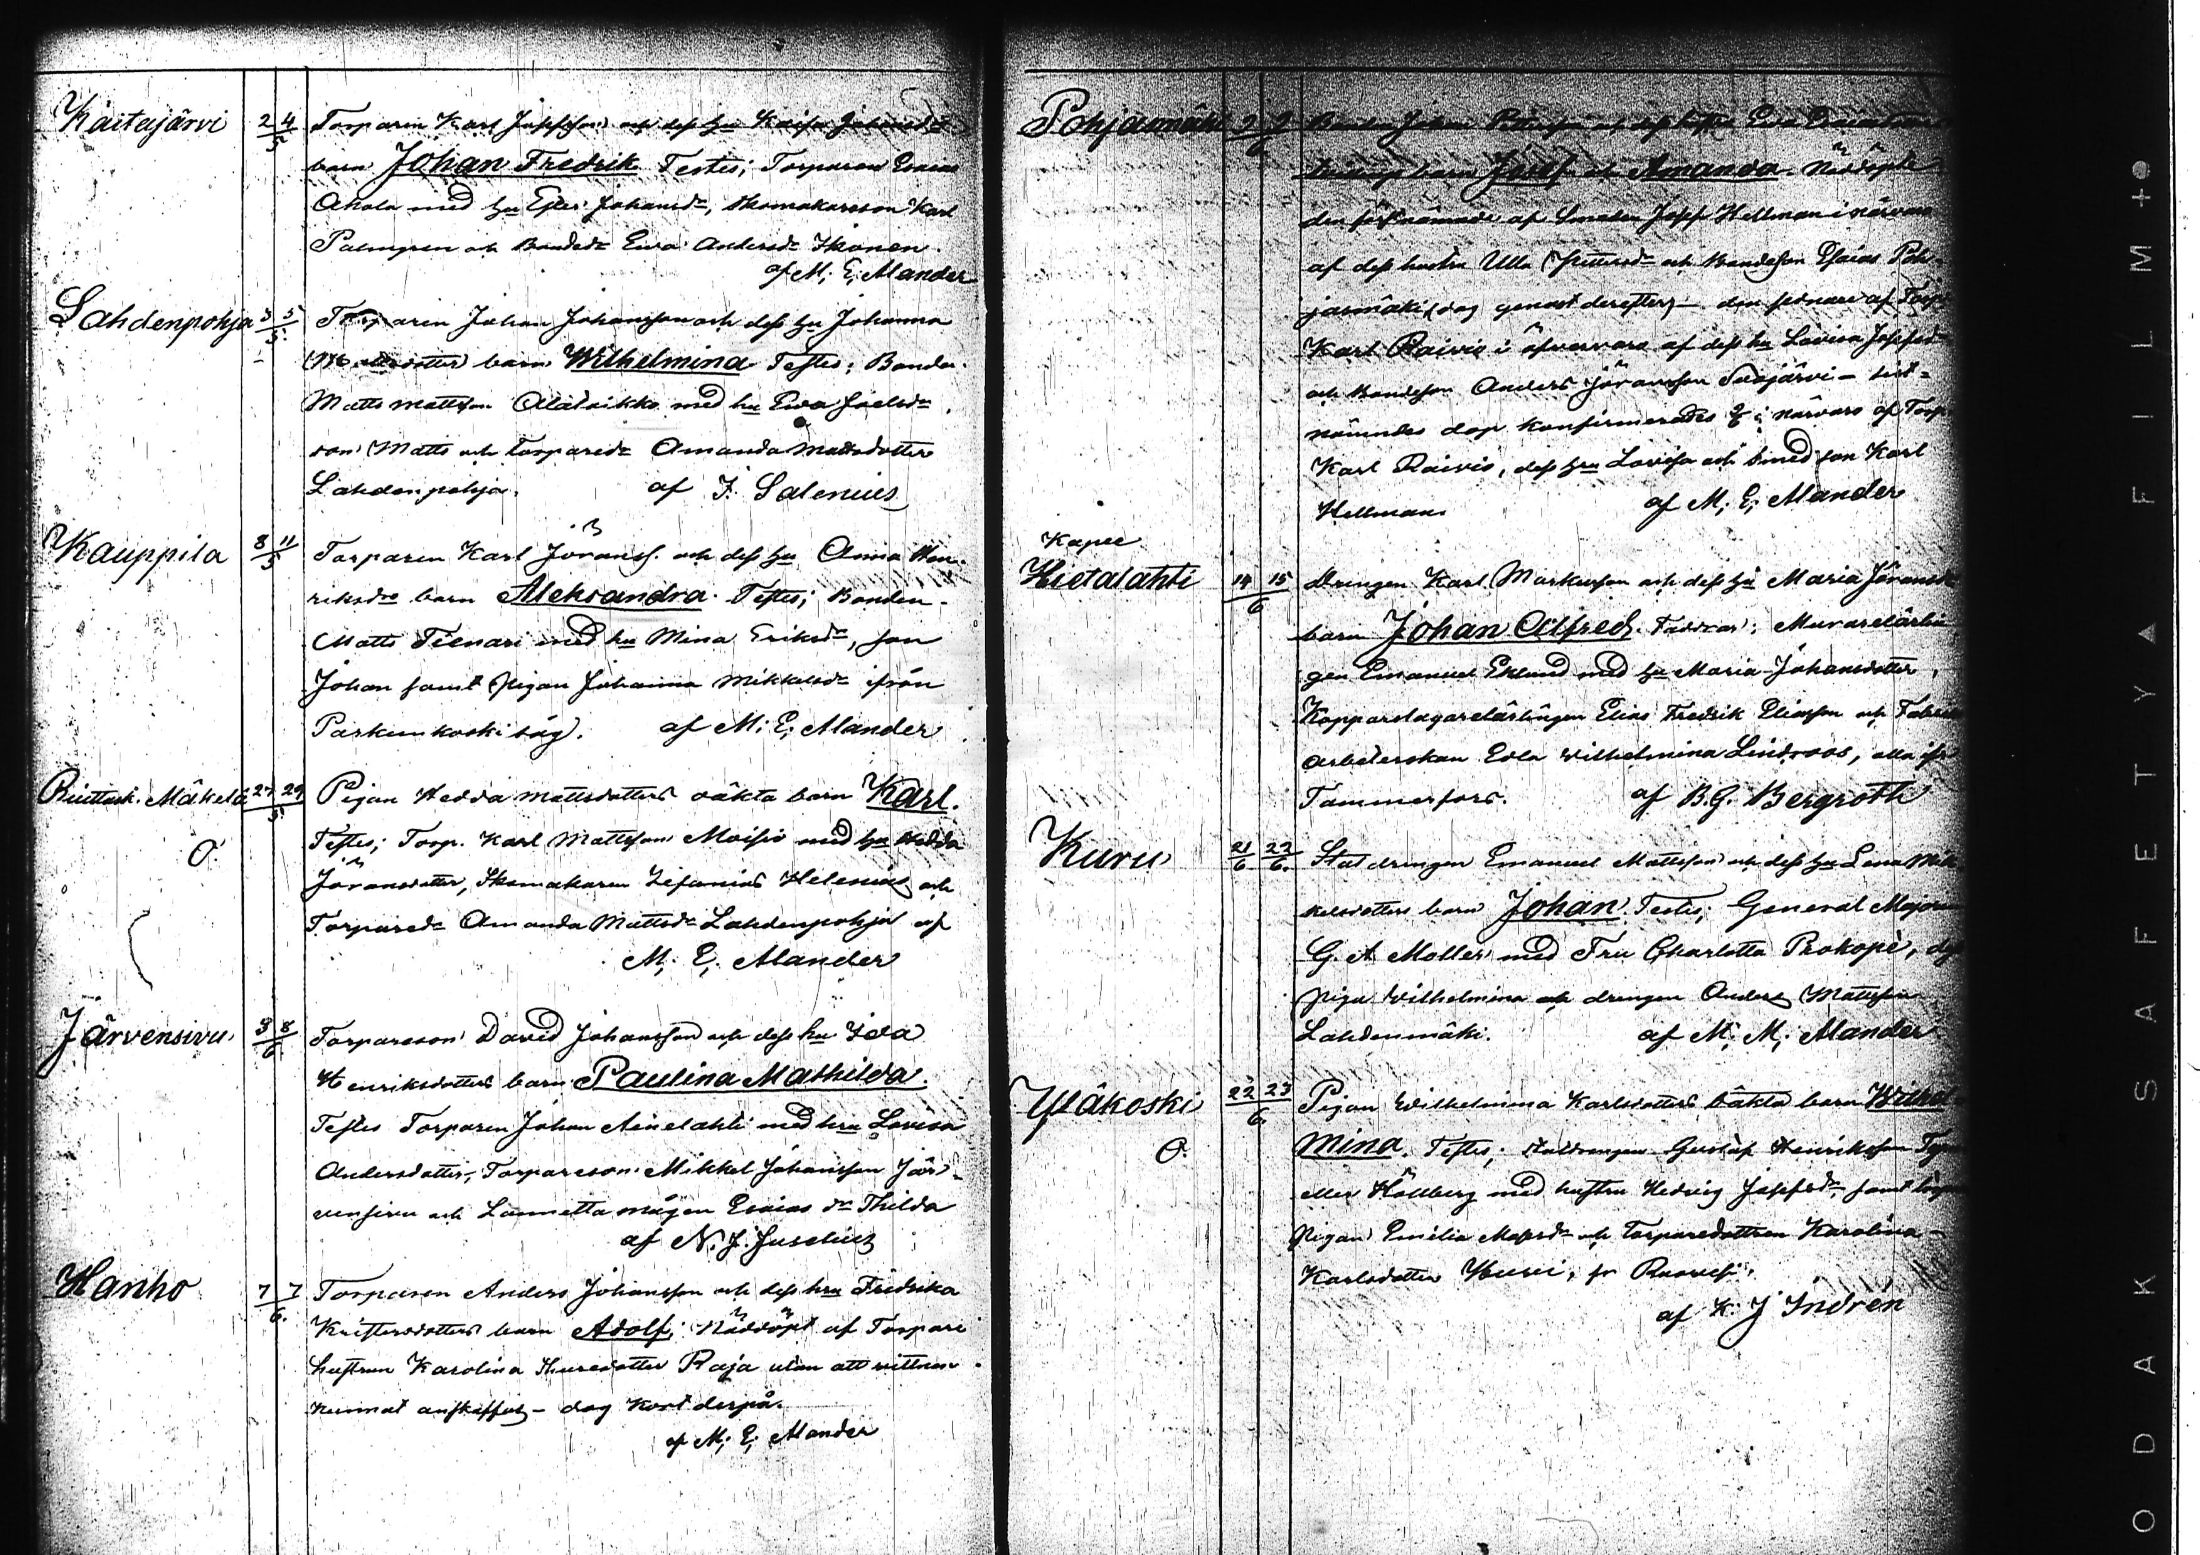 Kaitajärvi 2 4/5 Torparen Karl Josefsson och dess hu Kaisa
barn Johan Fredrik Testes; Torparen Esaias
Ahola med hu Ester Johansdr, skomakareson Karl
Palmgren och Bondedr Ewa Andersdr Ikonen
af M. E. Alander
Lahdenpohja 3 5/5 Torparen Johan Johansson och dess hu Johanna
barn Wilhelmina Testes; Bonden
Matts Mattsson Alataikko med hu Ewa Joelsdr
son Matts och Torparedr Amanda Mattsdotter
Lahdenpohja. af F. Salenius
Kauppila 8 11/5 Torparen Karl Göranss. och dess hu Anna Hen-
riksdr barn Aleksandra. Testes; Bonden
Matts Teenari med hu Mina Eriksdr, son
Johan samt pigan Johanna Mikkelsdr ifrån
Parkunkoski såg. af M. E. Alander
Mäkelä 27 29/5 Pigan Hedda Mattsdotters oäkta barn Karl.
O. Testes; Torp. Karl Mattsson Moisio med hu Hedda
Göransdotter, Skomakaren Zefanias Helenius och
Torparedr Amanda Mattsdr Lahdenpohja af
M. E. Alander
Järvensivu 3 8/6 Torpareson David Johansson och dess hu Ida
Henriksdotters barn Paulina Mathilda.
Testes Torparen Johan Ainelahti med hru Lovisa
Andersdotter, Torpareson Mikkel Johansson Jär-
vensivu och Lannetta mågen Esaias dr Thilda
af N. J. Juselius
Hanho 7 7/6. Torparen Anders Johansson och dess hru Fredrika
Kristersdotters barn Adolf; Nöddöpt af Torpare
hustrun Karolina Thuredotter Raja utan att vittnen
kunnat anskaffas - dog kort derpå.
af M. E. Alander
Pohjasmäki Bonden Johan och dess hustru Ewa
barn Josef och Amanda. Nöddöpte
den förstnämnde af Smeden Josef Hellman i närvaro
af dess hustru Ulla Pettersdr och Bondeson Esaias Poh-
jasmäki (dog genast derefter) - den sednare af Torp
Karl Raivio i öfvervaro af dess hu Lovisa Josefsd
och Bondeson Anders Göransson - sist-
nämndes dop konfirmerades i närvaro af Torp
Karl Raivio, dess hru Lovisa och smed son Karl
Hellman. af M. E. Alander
Kapee
Hietalahti 14 15/6 Drengen Karl Markusson och dess hu Maria Göransd
barn Johan Alfred. Faddrar: Murarelärlin
gen Emanuel Eklund med hu Maria Johansdotter,
Kopparslagarelärlingen Elias Fredrik Eliasson och Fabriks
arbeterskan Edla Wilhelmina Lindroos, alla ifr
Tammerfors. af B.G. Bergroth
Kuru 21/6 22/6. Statdrengen Emanuel Mattsson och dess hu Lena Mik
kelsdotters barn Johan. Testes; General Majoren
G. A Moller med Fru Charlotta Prokopè,
piga Wilhelmina och drengen Anders Mattsson
Lahdenmäki. af M. M. Alander
Yläkoski 22 23/6 Pigan Wilhelmina Karlsdotters oäkta barn Wilhel
O. mina. Testes; Staldrengen Gustaf Henriksson
eller Hällberg med hustru Hedvig Josefsdr, samt
pigan Emilia och Torparedottren Karolina
Karlsdotter fr Ruovesi.
af K. J Indrén
KODAK SAFETY FILM